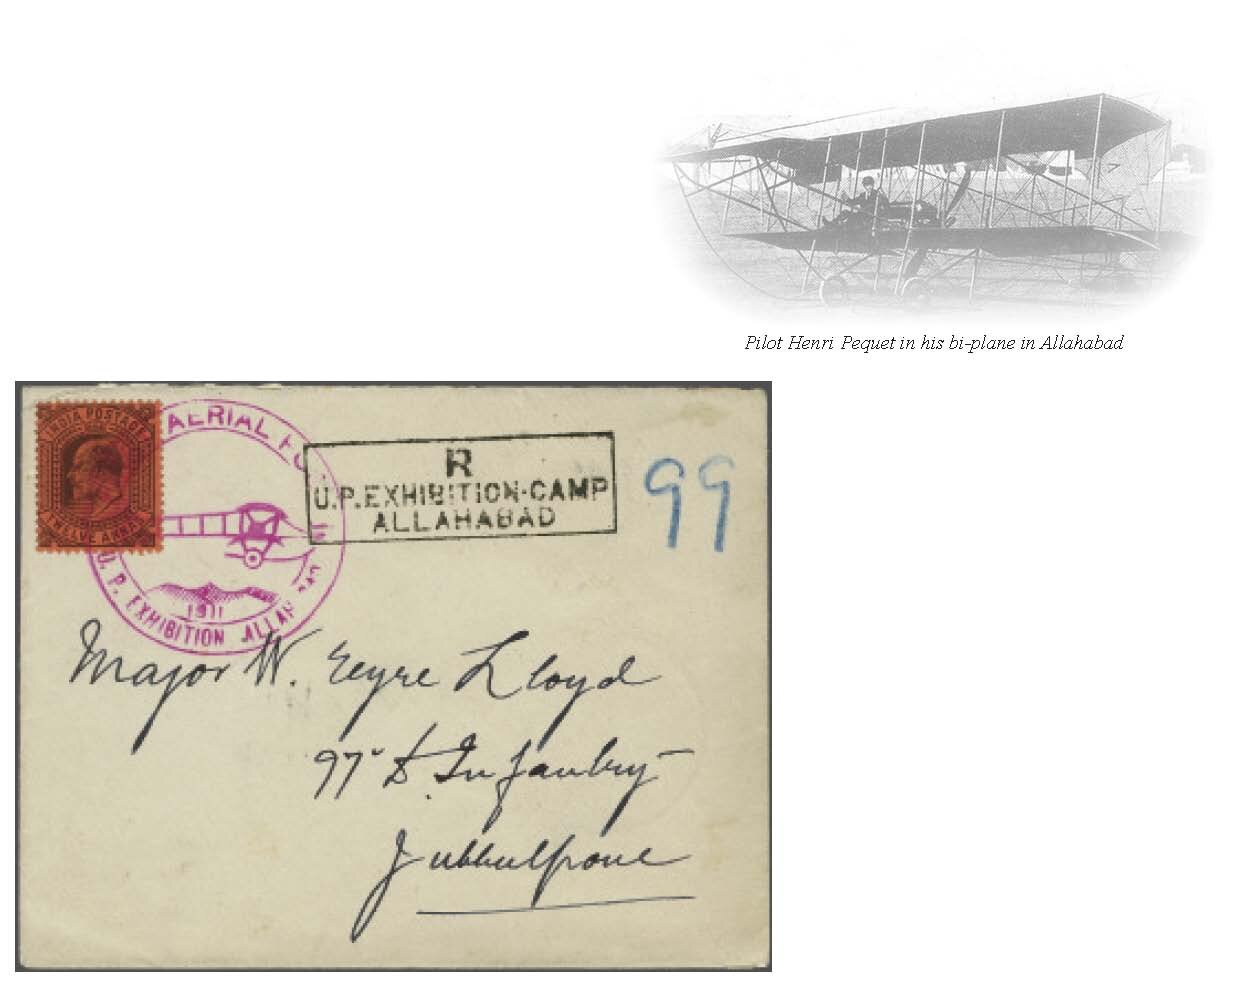 Pilot Henri Pequet in his bi-plane in Allahabad
INDIA POSTAGE
TWELVE ANNAS
AERIAL PO
1911
U. P. EXHIBITION ALLAHABAD
R
U.P. EXHIBITION-CAMP
ALLAHABAD
99
Major W. Eeyre Lloyd
97th D. Infantry
Jubbulpore